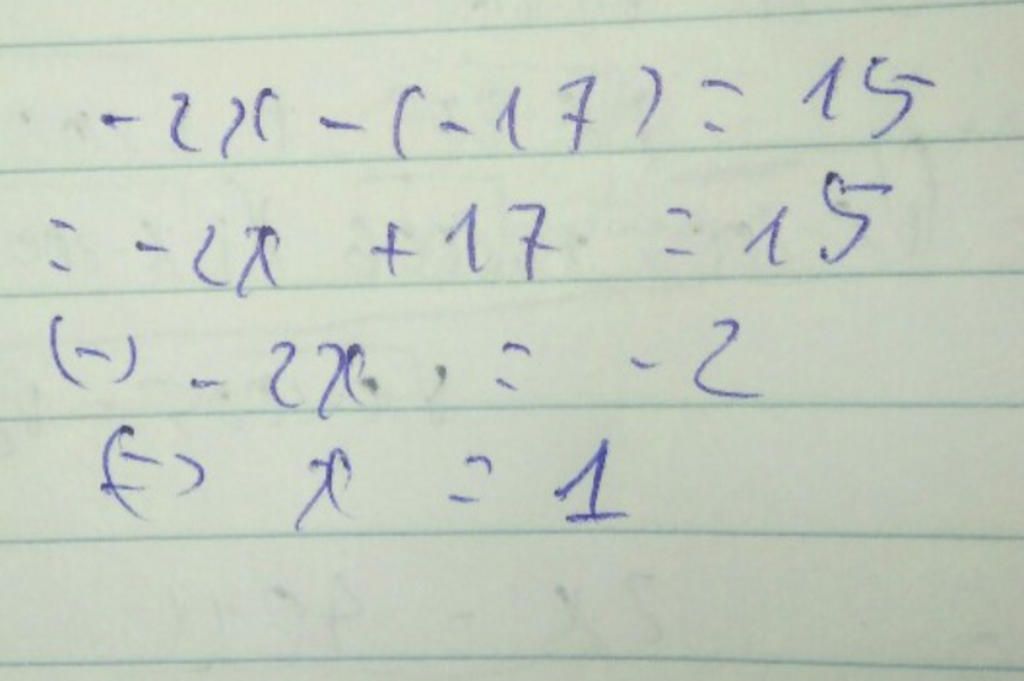 -2x - (-17) = 15
= -2x + 17 = 15
(-) -2x = -2
(=) x = 1